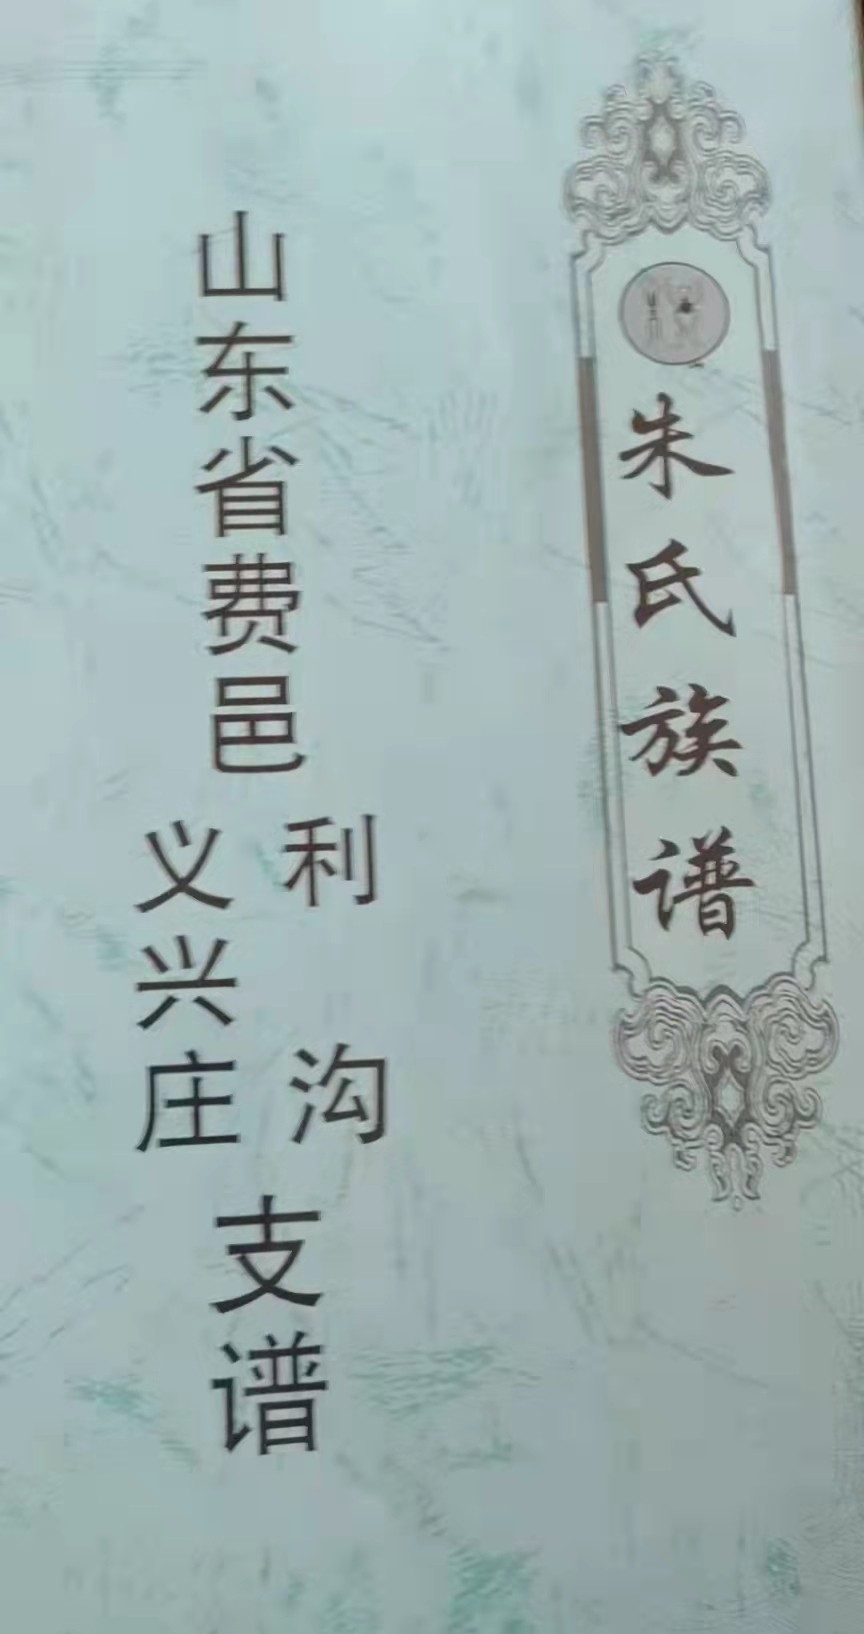 朱氏族谱
山东省费邑
利沟
义兴庄
支谱